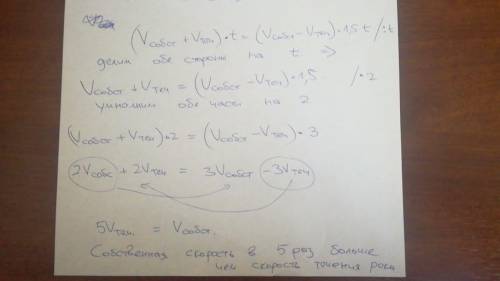 (Vсобст + Vтеч)•t = (Vсобст - Vтеч)•1,5 t /:t
делим обе стороны на t. =>
Vсобст + Vтеч = (Vсобст - Vтеч)•1,5 /•2
умножим обе части на 2
(Vсобст + Vтеч)•2 = (Vсобст - Vтеч)•3
2Vсобс + 2Vтеч = 3Vсобст - 3Vтеч
5Vтеч. = Vсобст.
Собственная скорость в 5 раз больше
чем скорость течения реки